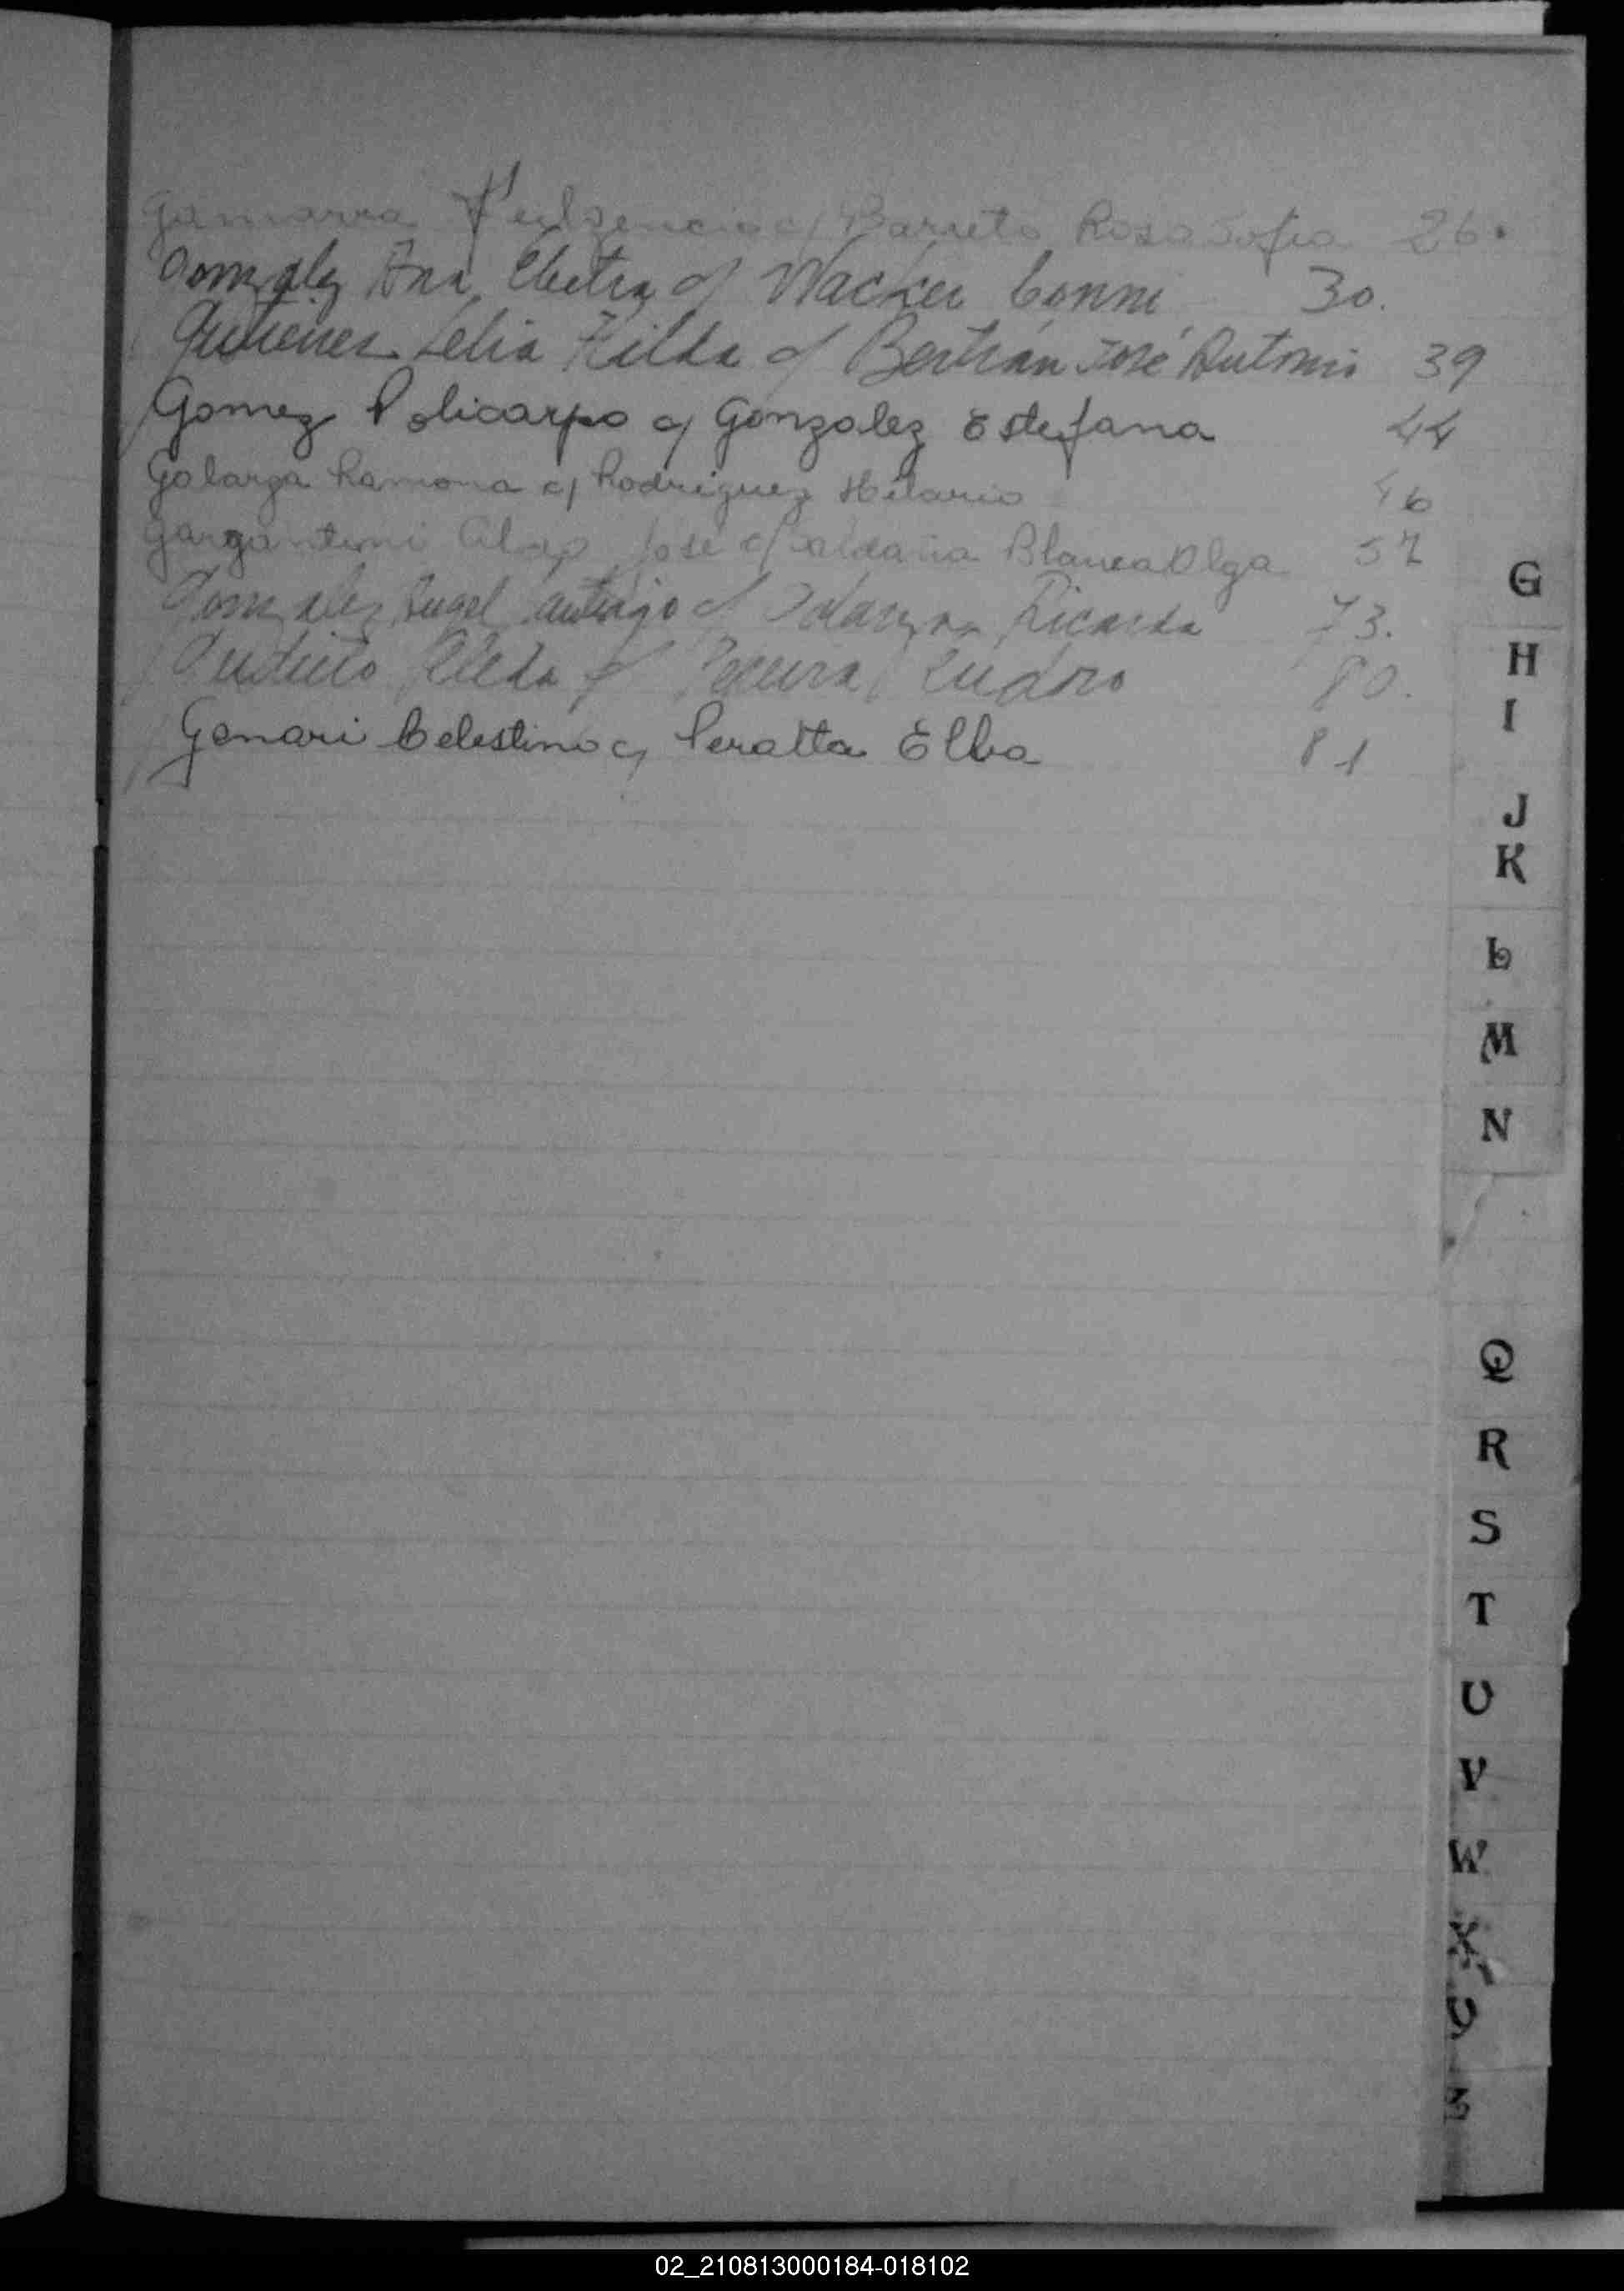 Gamarra Fulgencio c/ Barreto Rosa Sofia 26.
Gonzalez Ana Electra c/ Wacker Conni 30.
Gimenez Lelia Hilda c/ Bertrán José Antonio 39
Gomez Policarpo c/ Gonzalez Estefana 44
Galarza Ramona c/ Rodriguez Hilario 46
Gargantini José c/ Saldaña Blanca Olga 57
Gonzalez Angel Santiago c/ Ricarda 73.
Elida c/ Pereira Eudoro 80.
Genari Celestino c/ Peralta Elba 81
G
H
I
J
K
L
M
N
Q
R
S
T
U
V
W
X
02_210813000184-018102